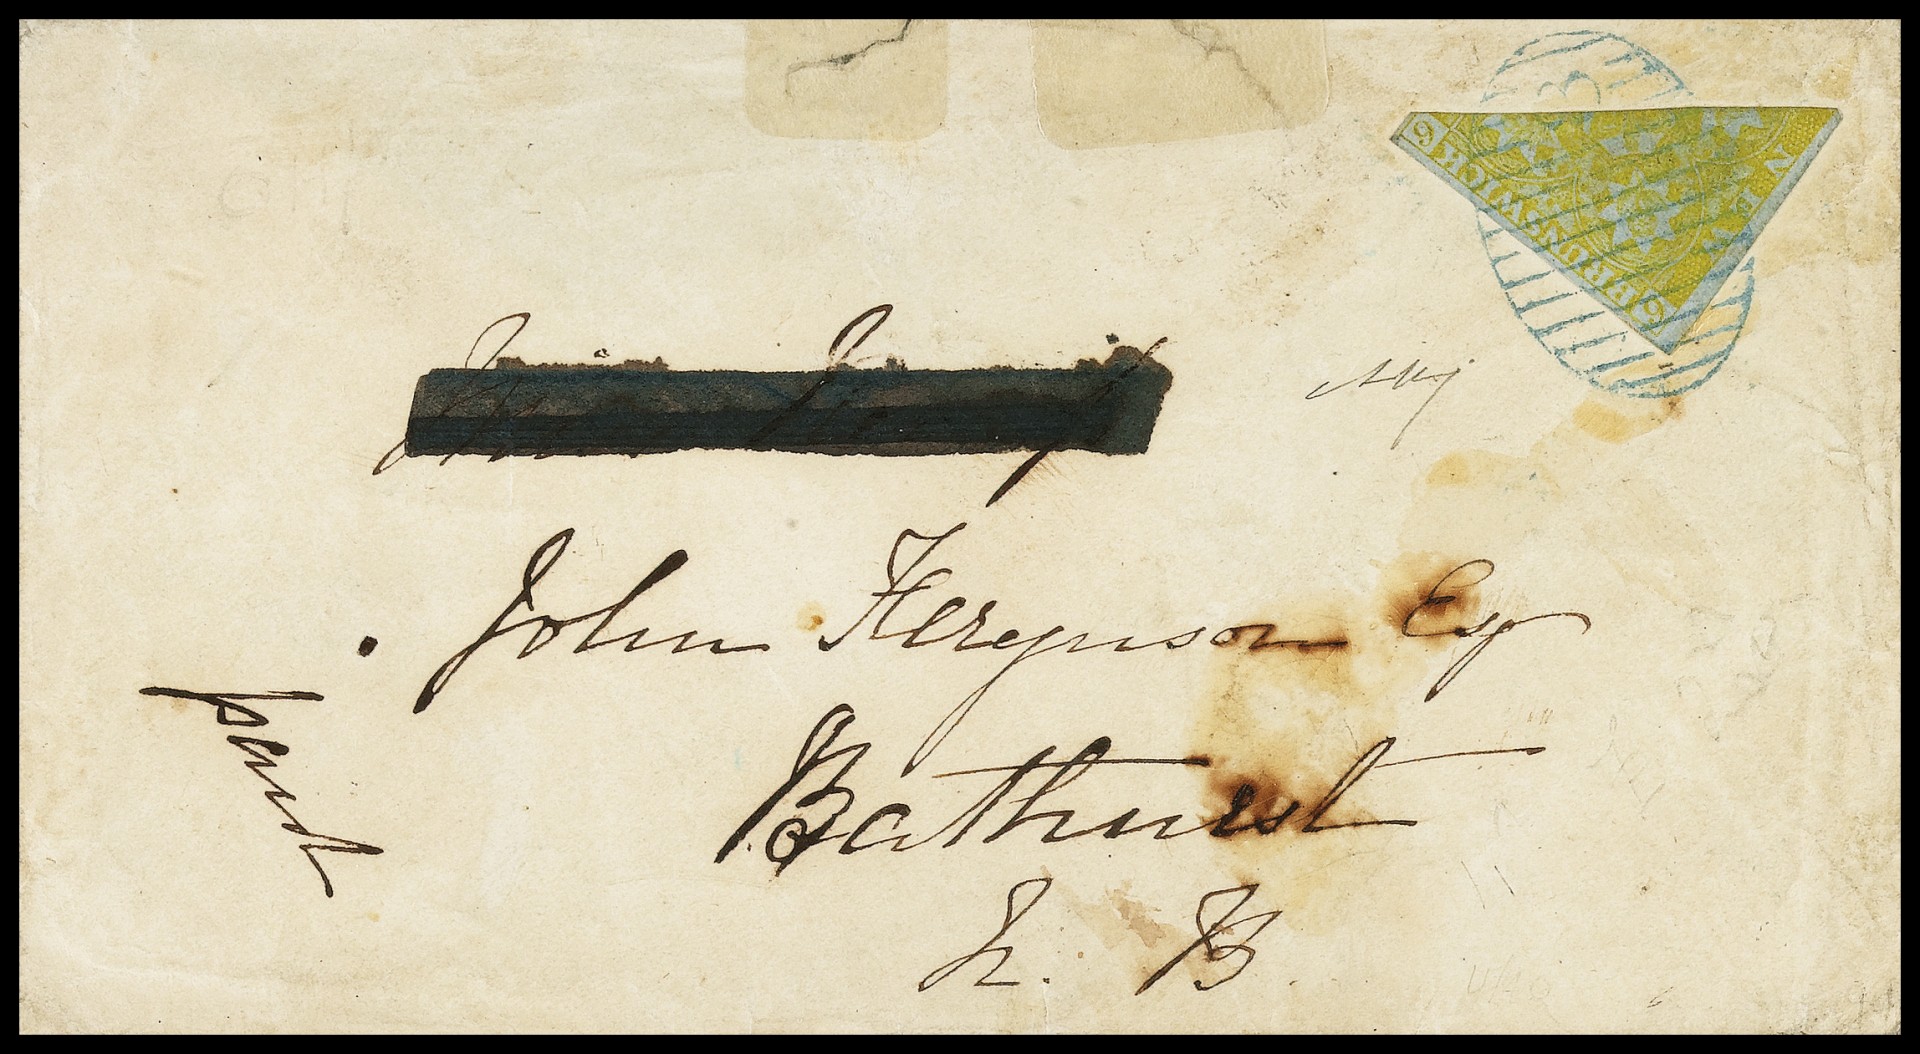 NEW BRUNSWICK
6
6
3
John Ferguson Esq
Bathurst
N. B.
paid